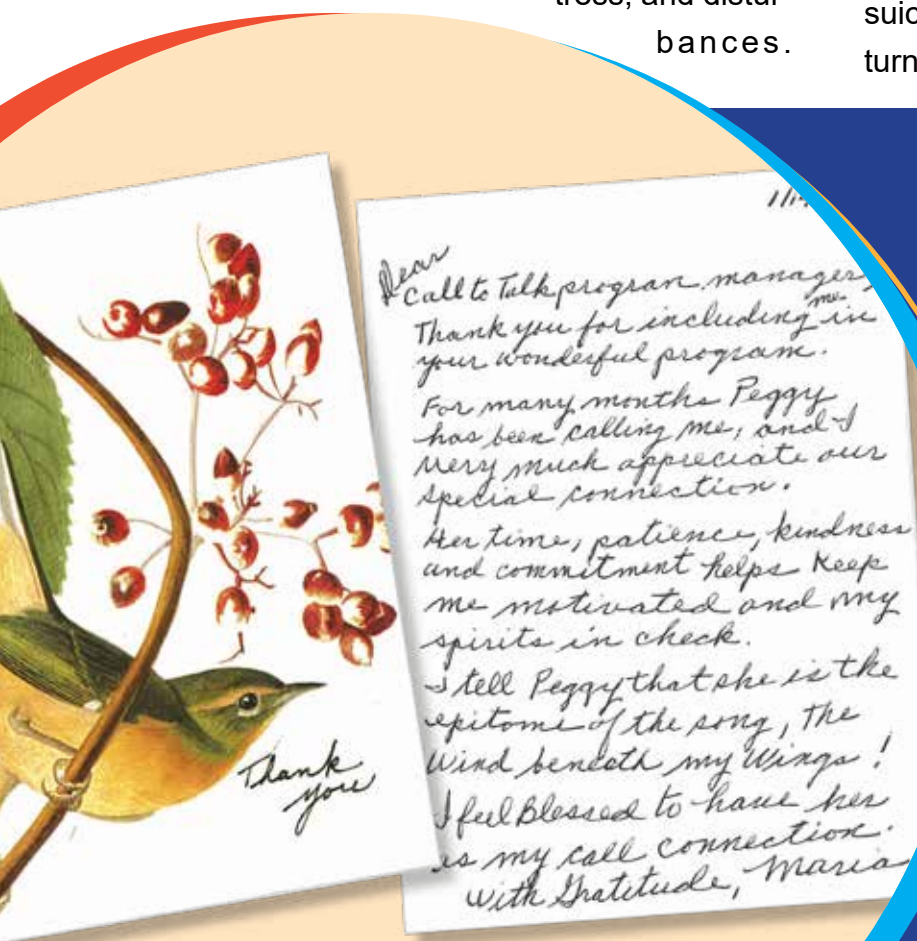 bances.
suic
turn
1/14
Dear
Call to Talk program manager,
Thank you for including me in
your wonderful program.
For many months Peggy
has been calling me, and I
very much appreciate our
special connection.
Her time, patience, kindness
and commitment helps keep
me motivated and my
spirits in check.
I tell Peggy that she is the
epitome of the song, The
Wind beneath my Wings!
I feel Blessed to have her
as my call connection.
With Gratitude, Maria
Thank
you